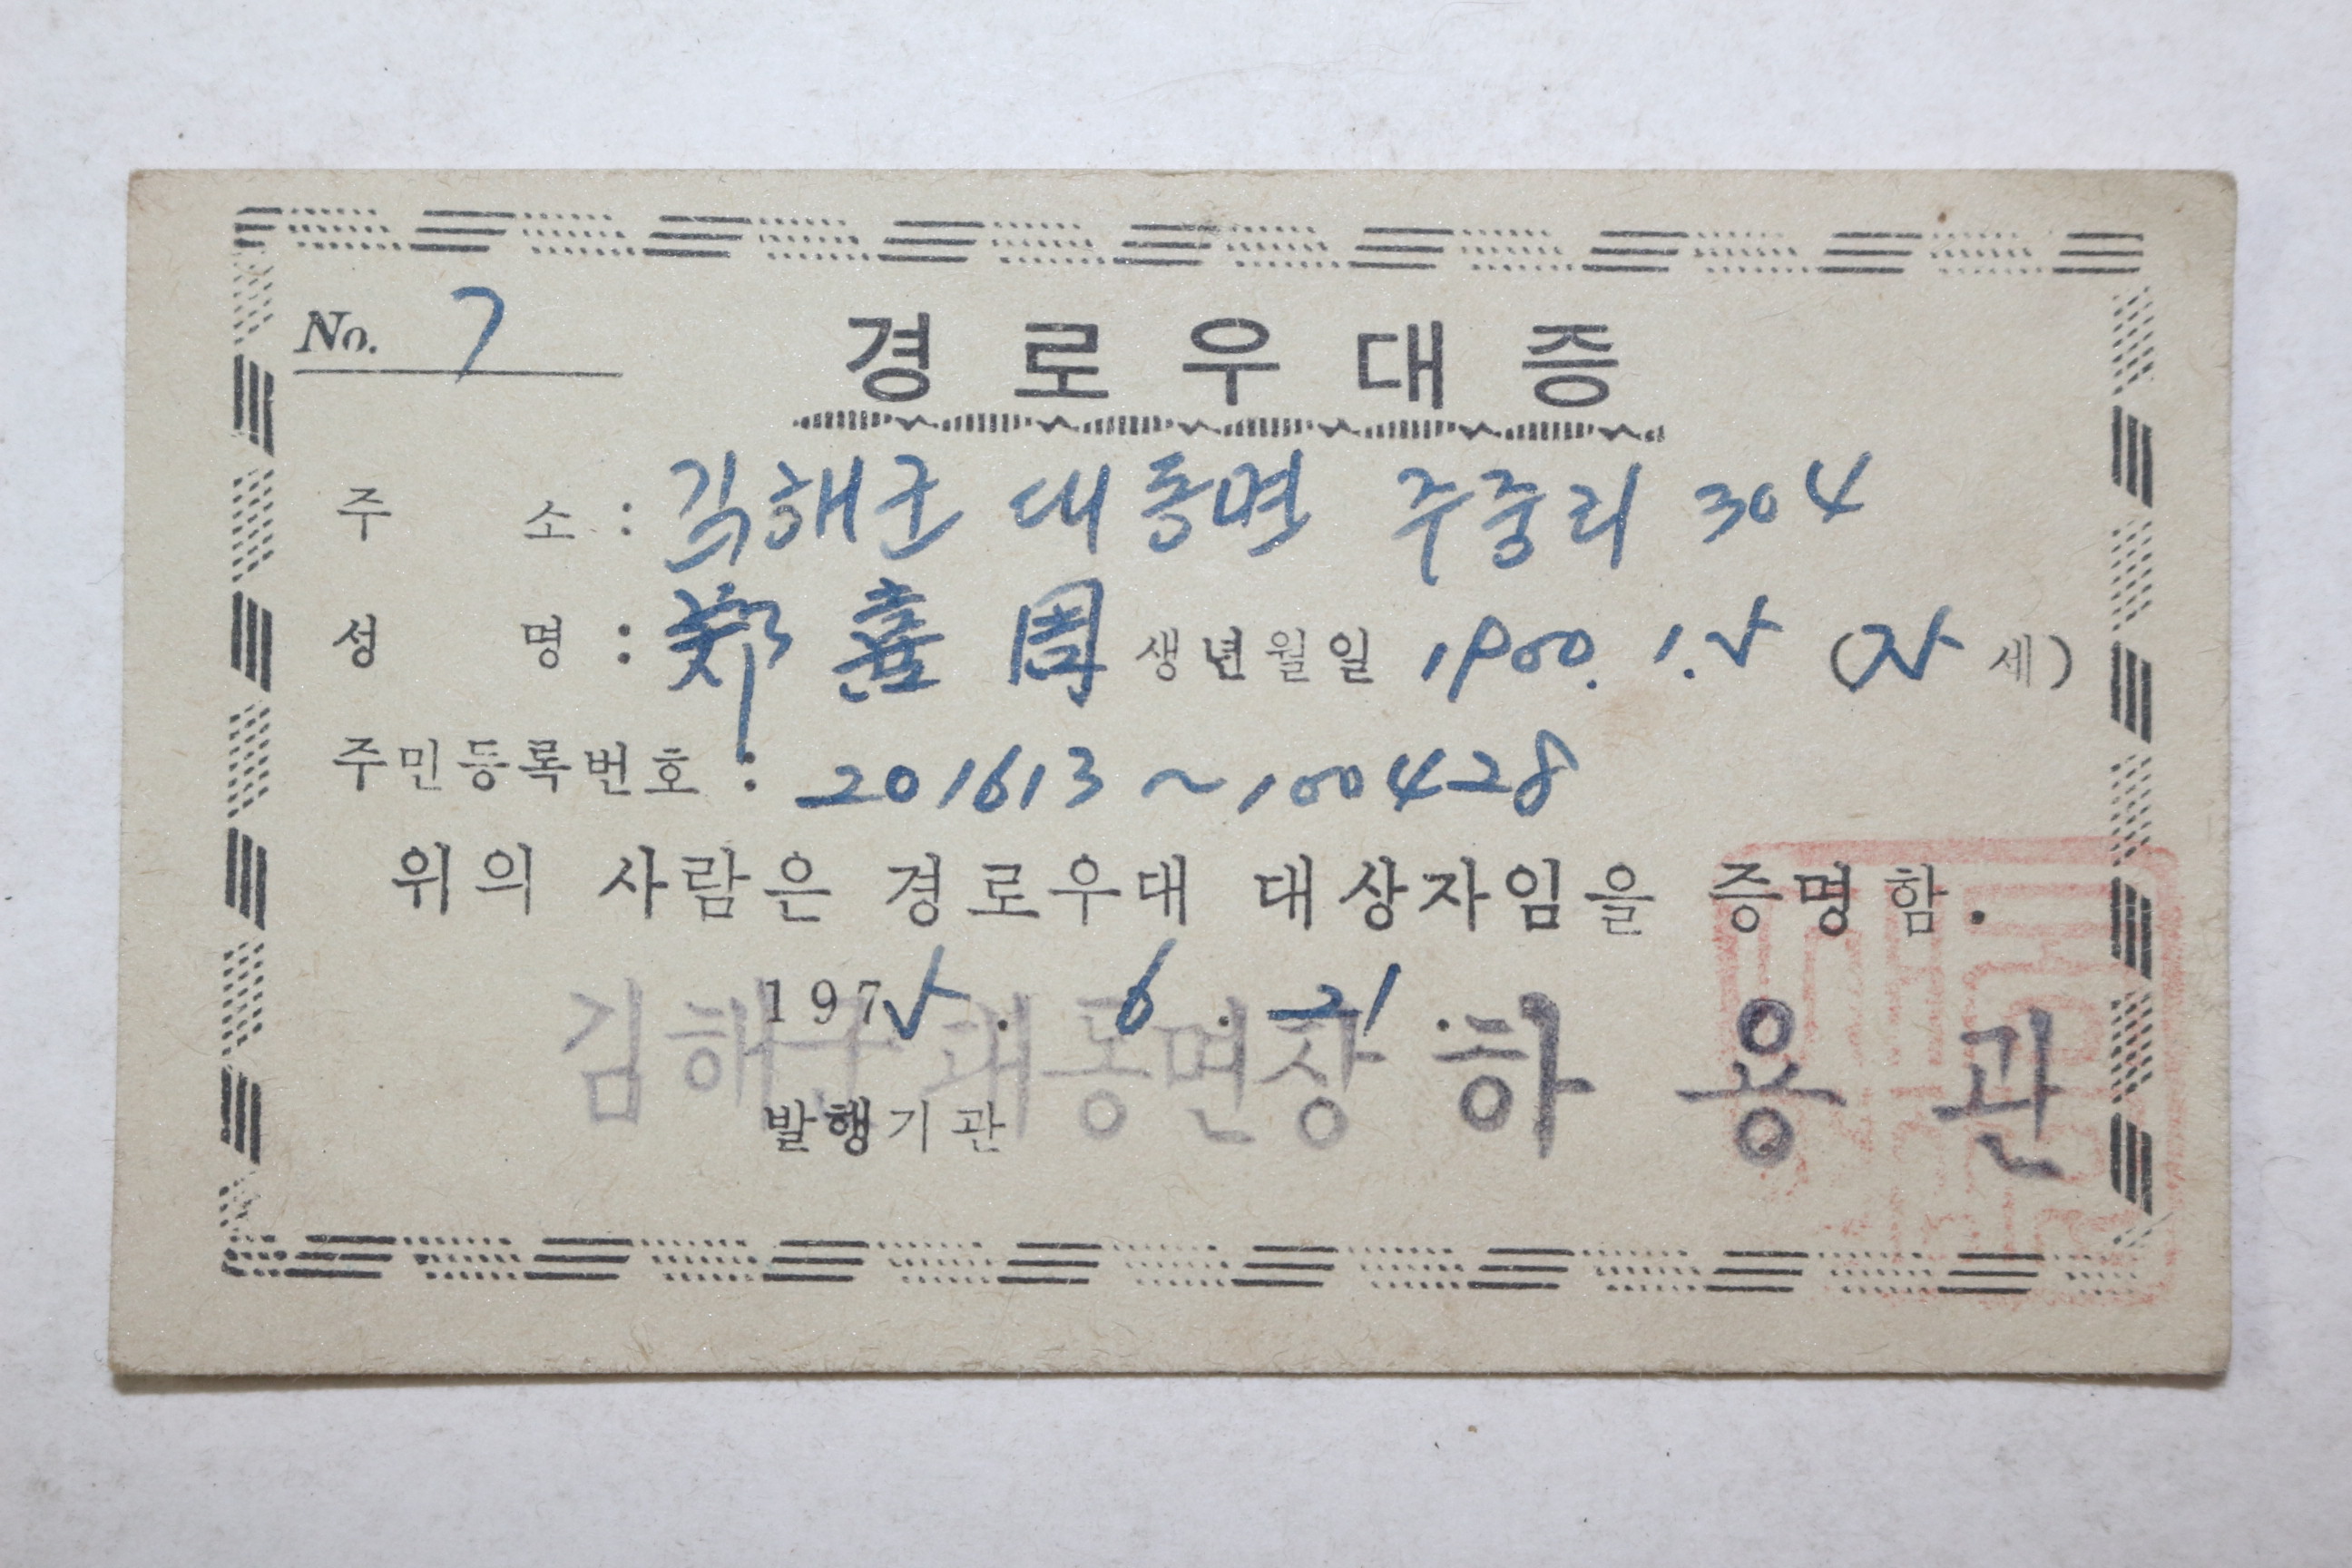 No. 7
경로우대증
주 소 : 김해군 대동면 주중리 304
성 명 : 鄭憙周 生년월일 1900. 1. 5 (75 세)
주민등록번호 : 201613 ~ 100428
위의 사람은 경로우대 대상자임을 증명함.
1975. 6. 21.
김해군대동면장 하용관
발행기관